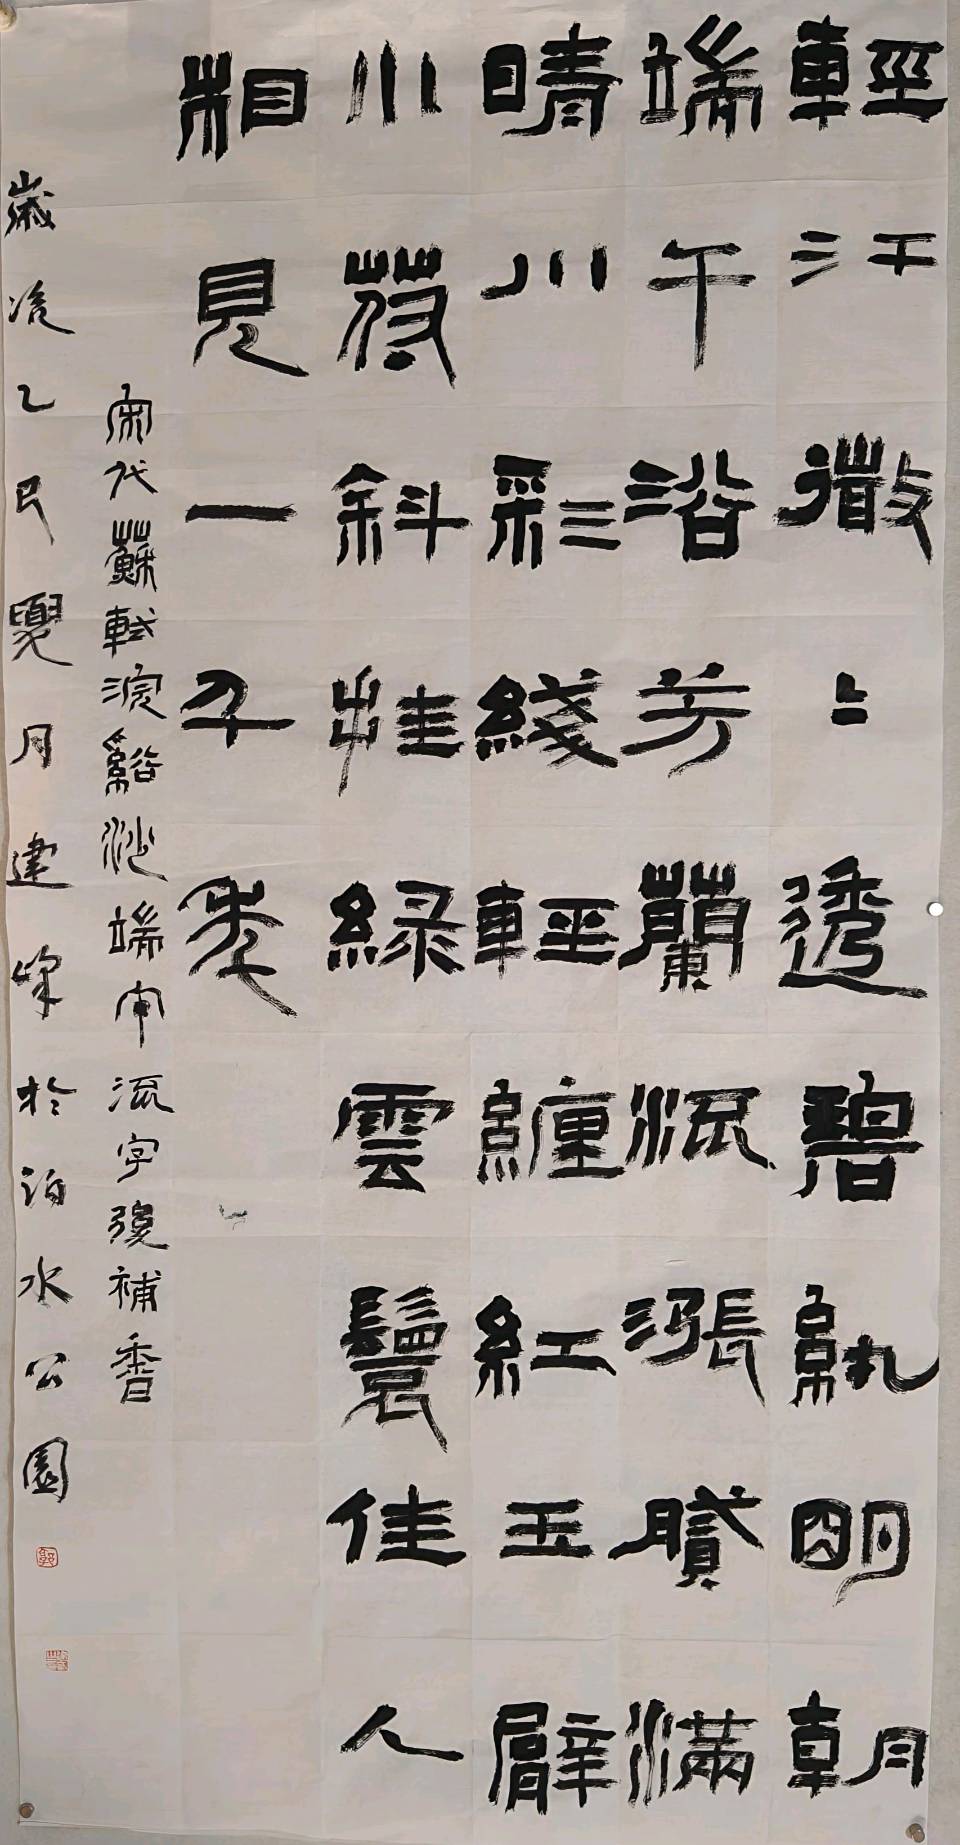 輕汗微〻透碧紈明朝
端午浴芳蘭流漲膩滿
晴川彩綫輕纏紅玉臂
小苻斜挂綠雲鬟佳人
相見一千年
宋代蘇軾浣谿沙端午流字後補香
歲次乙巳夏月建峰於泊水公園